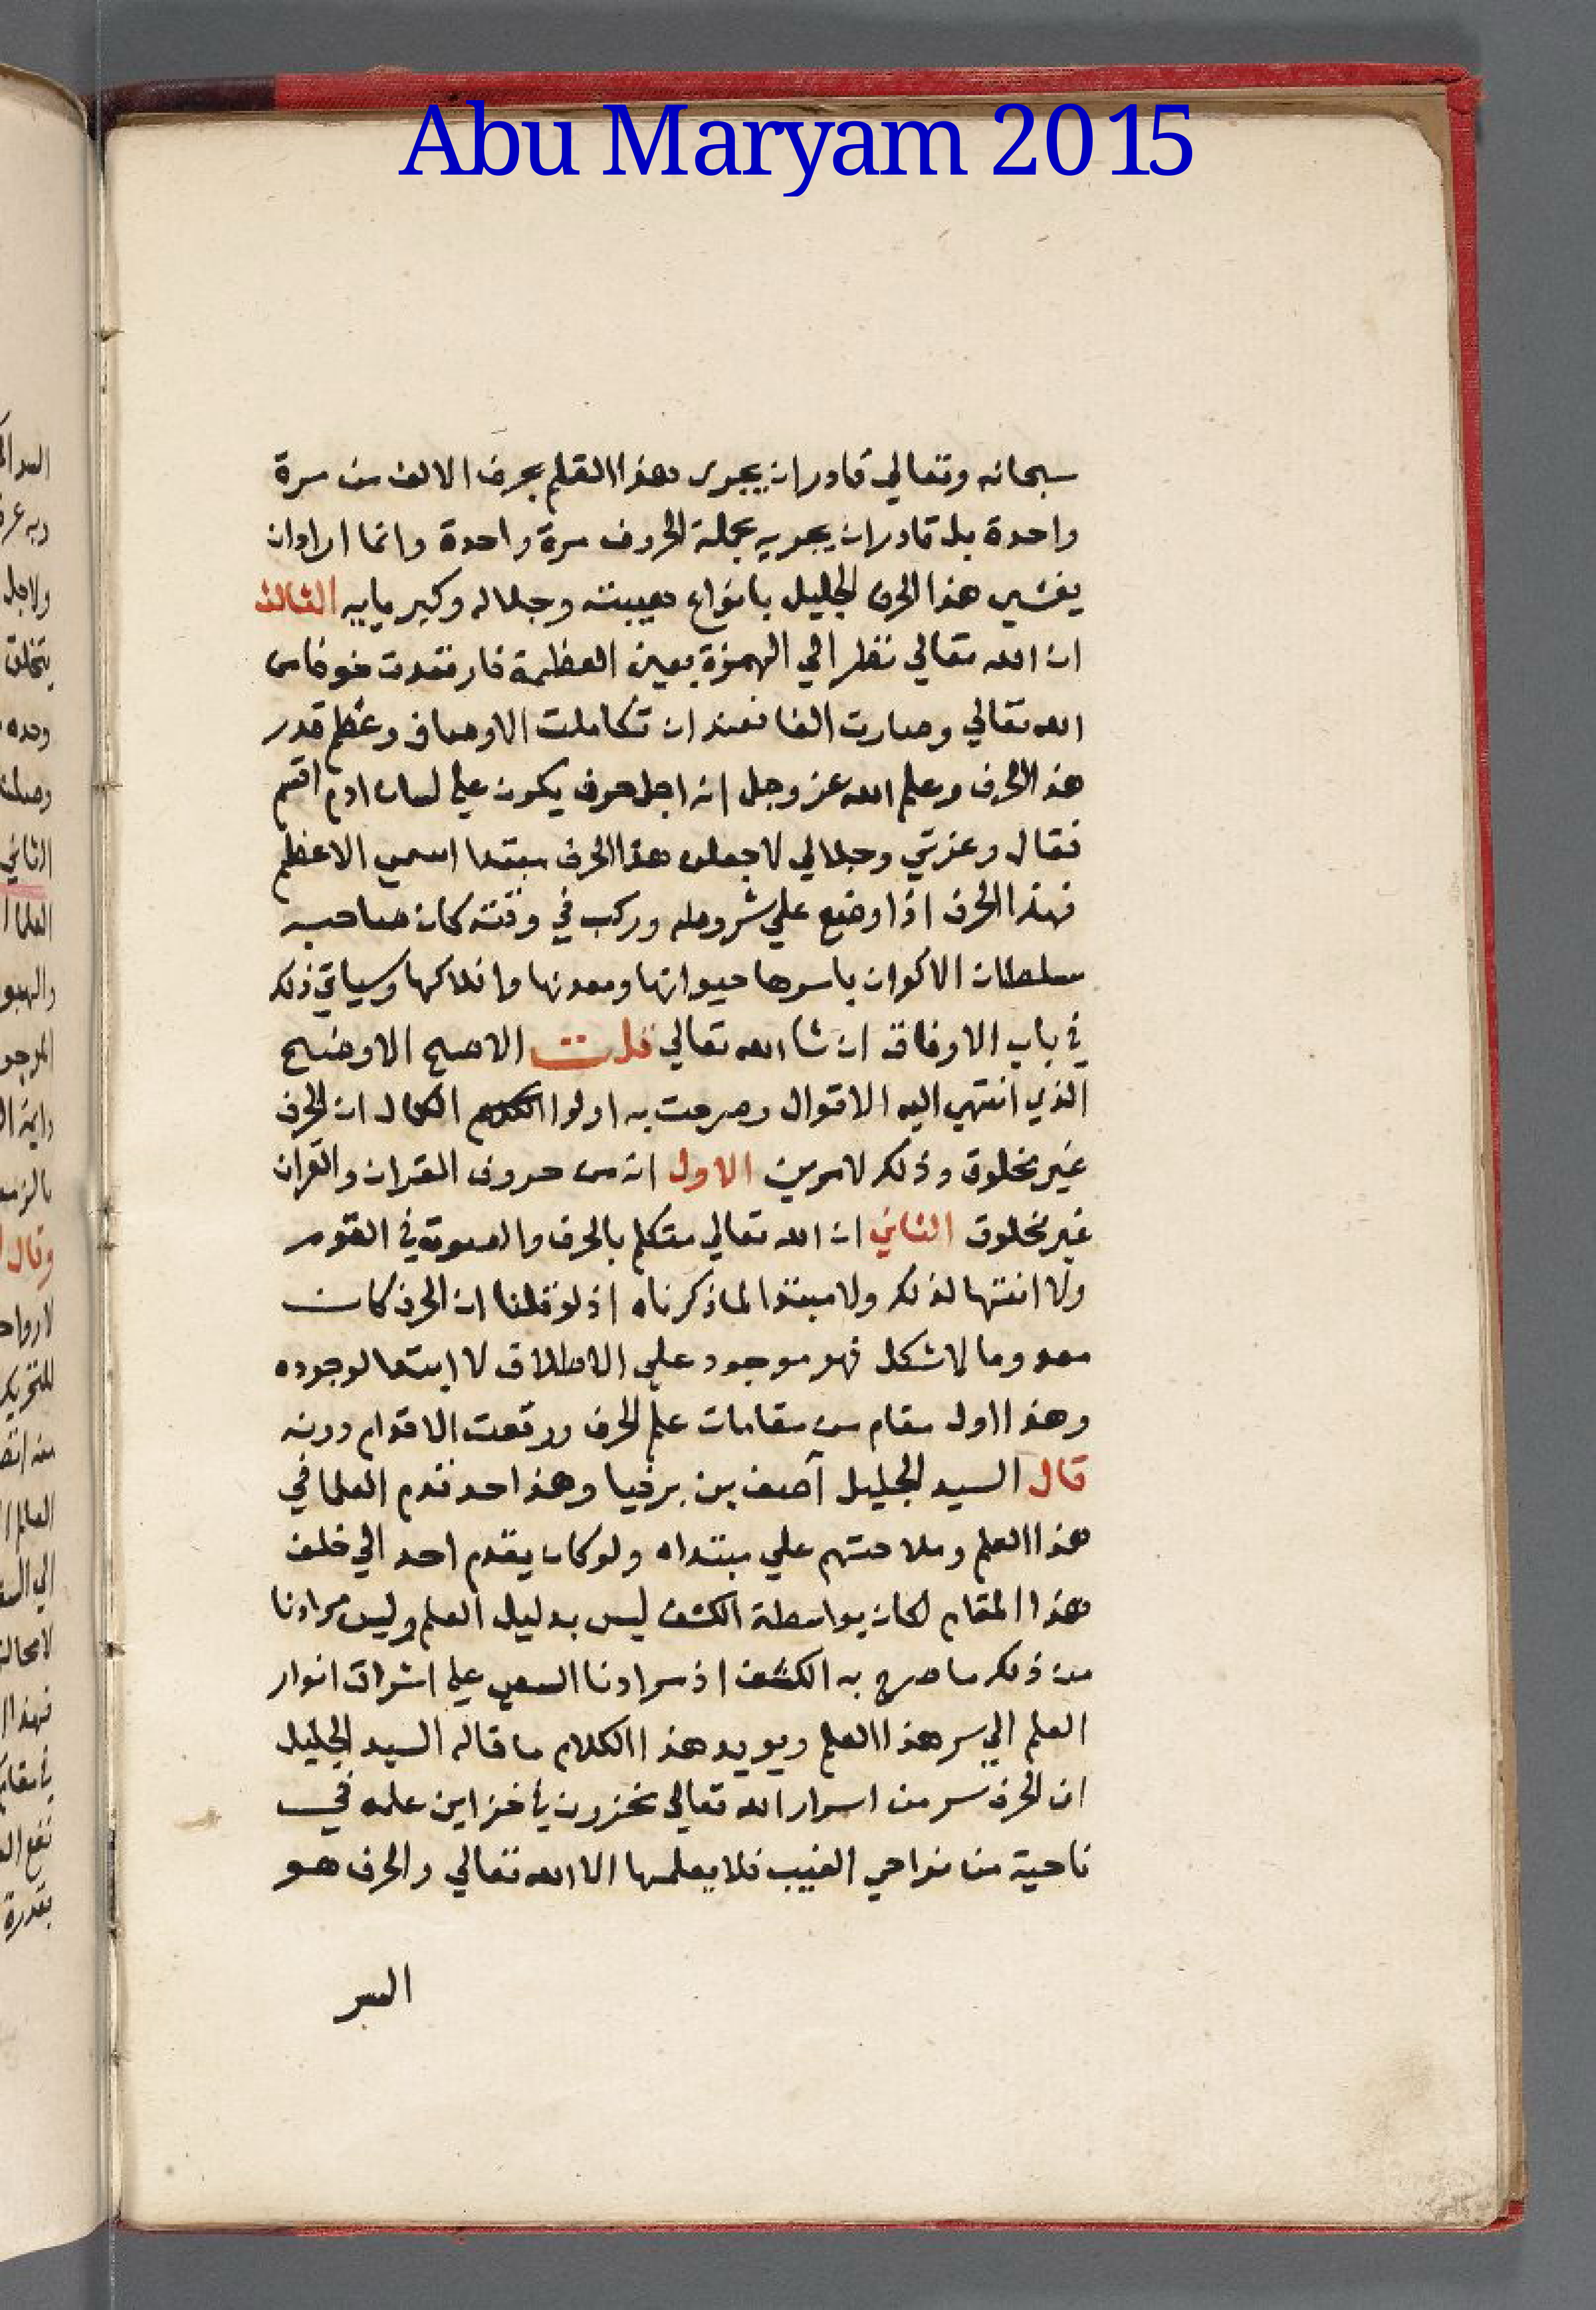 Abu Maryam 2015
سبحانه وتعالي قادر ان يجري هذا القلم بحرف الالف من مرة
واحدة بل قادر ان يجريه بجملة الحروف مرة واحدة وانما اراد ان
يغشي هذا الحرف الجليل بانواع هيبته وجلاله وكبريايه الثالث
ان الله تعالي نظر الي الهمزة بعين العظمة فارتعدت خوفا من
الله تعالي وصارت الفا فعند ان تكاملت الاوصاف وعظم قدر
هذا الحرف وعلم الله عز وجل انه اجل حرف يكون علي لسان ادم اقسم
فقال وعزتي وجلالي لاجعلن هذا الحرف مبتدا اسمي الاعظم
فهذا الحرف اذا وضع علي شروطه وركب في وقته كان صاحبه
سلطان الاكوان باسرها حيوانها ومعدنها وافلاكها وسياتي ذلك
في باب الاوفاق ان شا الله تعالي قلت الاصح الاوضح
الذي انتهي اليه الاقوال وصرحت به اولوا الكمال ان الحرف
غير مخلوق وذلك لامرين الاول انه من حروف القران والقران
غير مخلوق الثاني ان الله تعالي متكلم بالحرف والصوت في القدم
ولا انتها لذلك ولا مبتدا لما ذكرناه اذ لو قلنا ان الحرف كان
معدوما لاشكل فهو موجود علي الاطلاق لا ابتدا لوجوده
وهذا اول مقام من مقامات علم الحرف ووقعت الاقدام دونه
قال السيد الجليل آصف بن برخيا وهذا حد قدم العلما في
هذا العلم وملاحتهم علي مبتداه ولو كان يقدم احد الي خلف
هذا المقام لكان بواسطة الكشف ليس بدليل العلم وليس مرادنا
من ذلك ما صرح به الكشف اذ مرادنا السعي علي اشراق انوار
العلم الي سر هذا العلم ويويد هذا الكلام ما قاله السيد الجليل
ان الحرف سر من اسرار الله تعالي مخزون في خزاين علمه في
ناحية من نواحي الغيب فلا يعلمها الا الله تعالي والحرف هو
السر